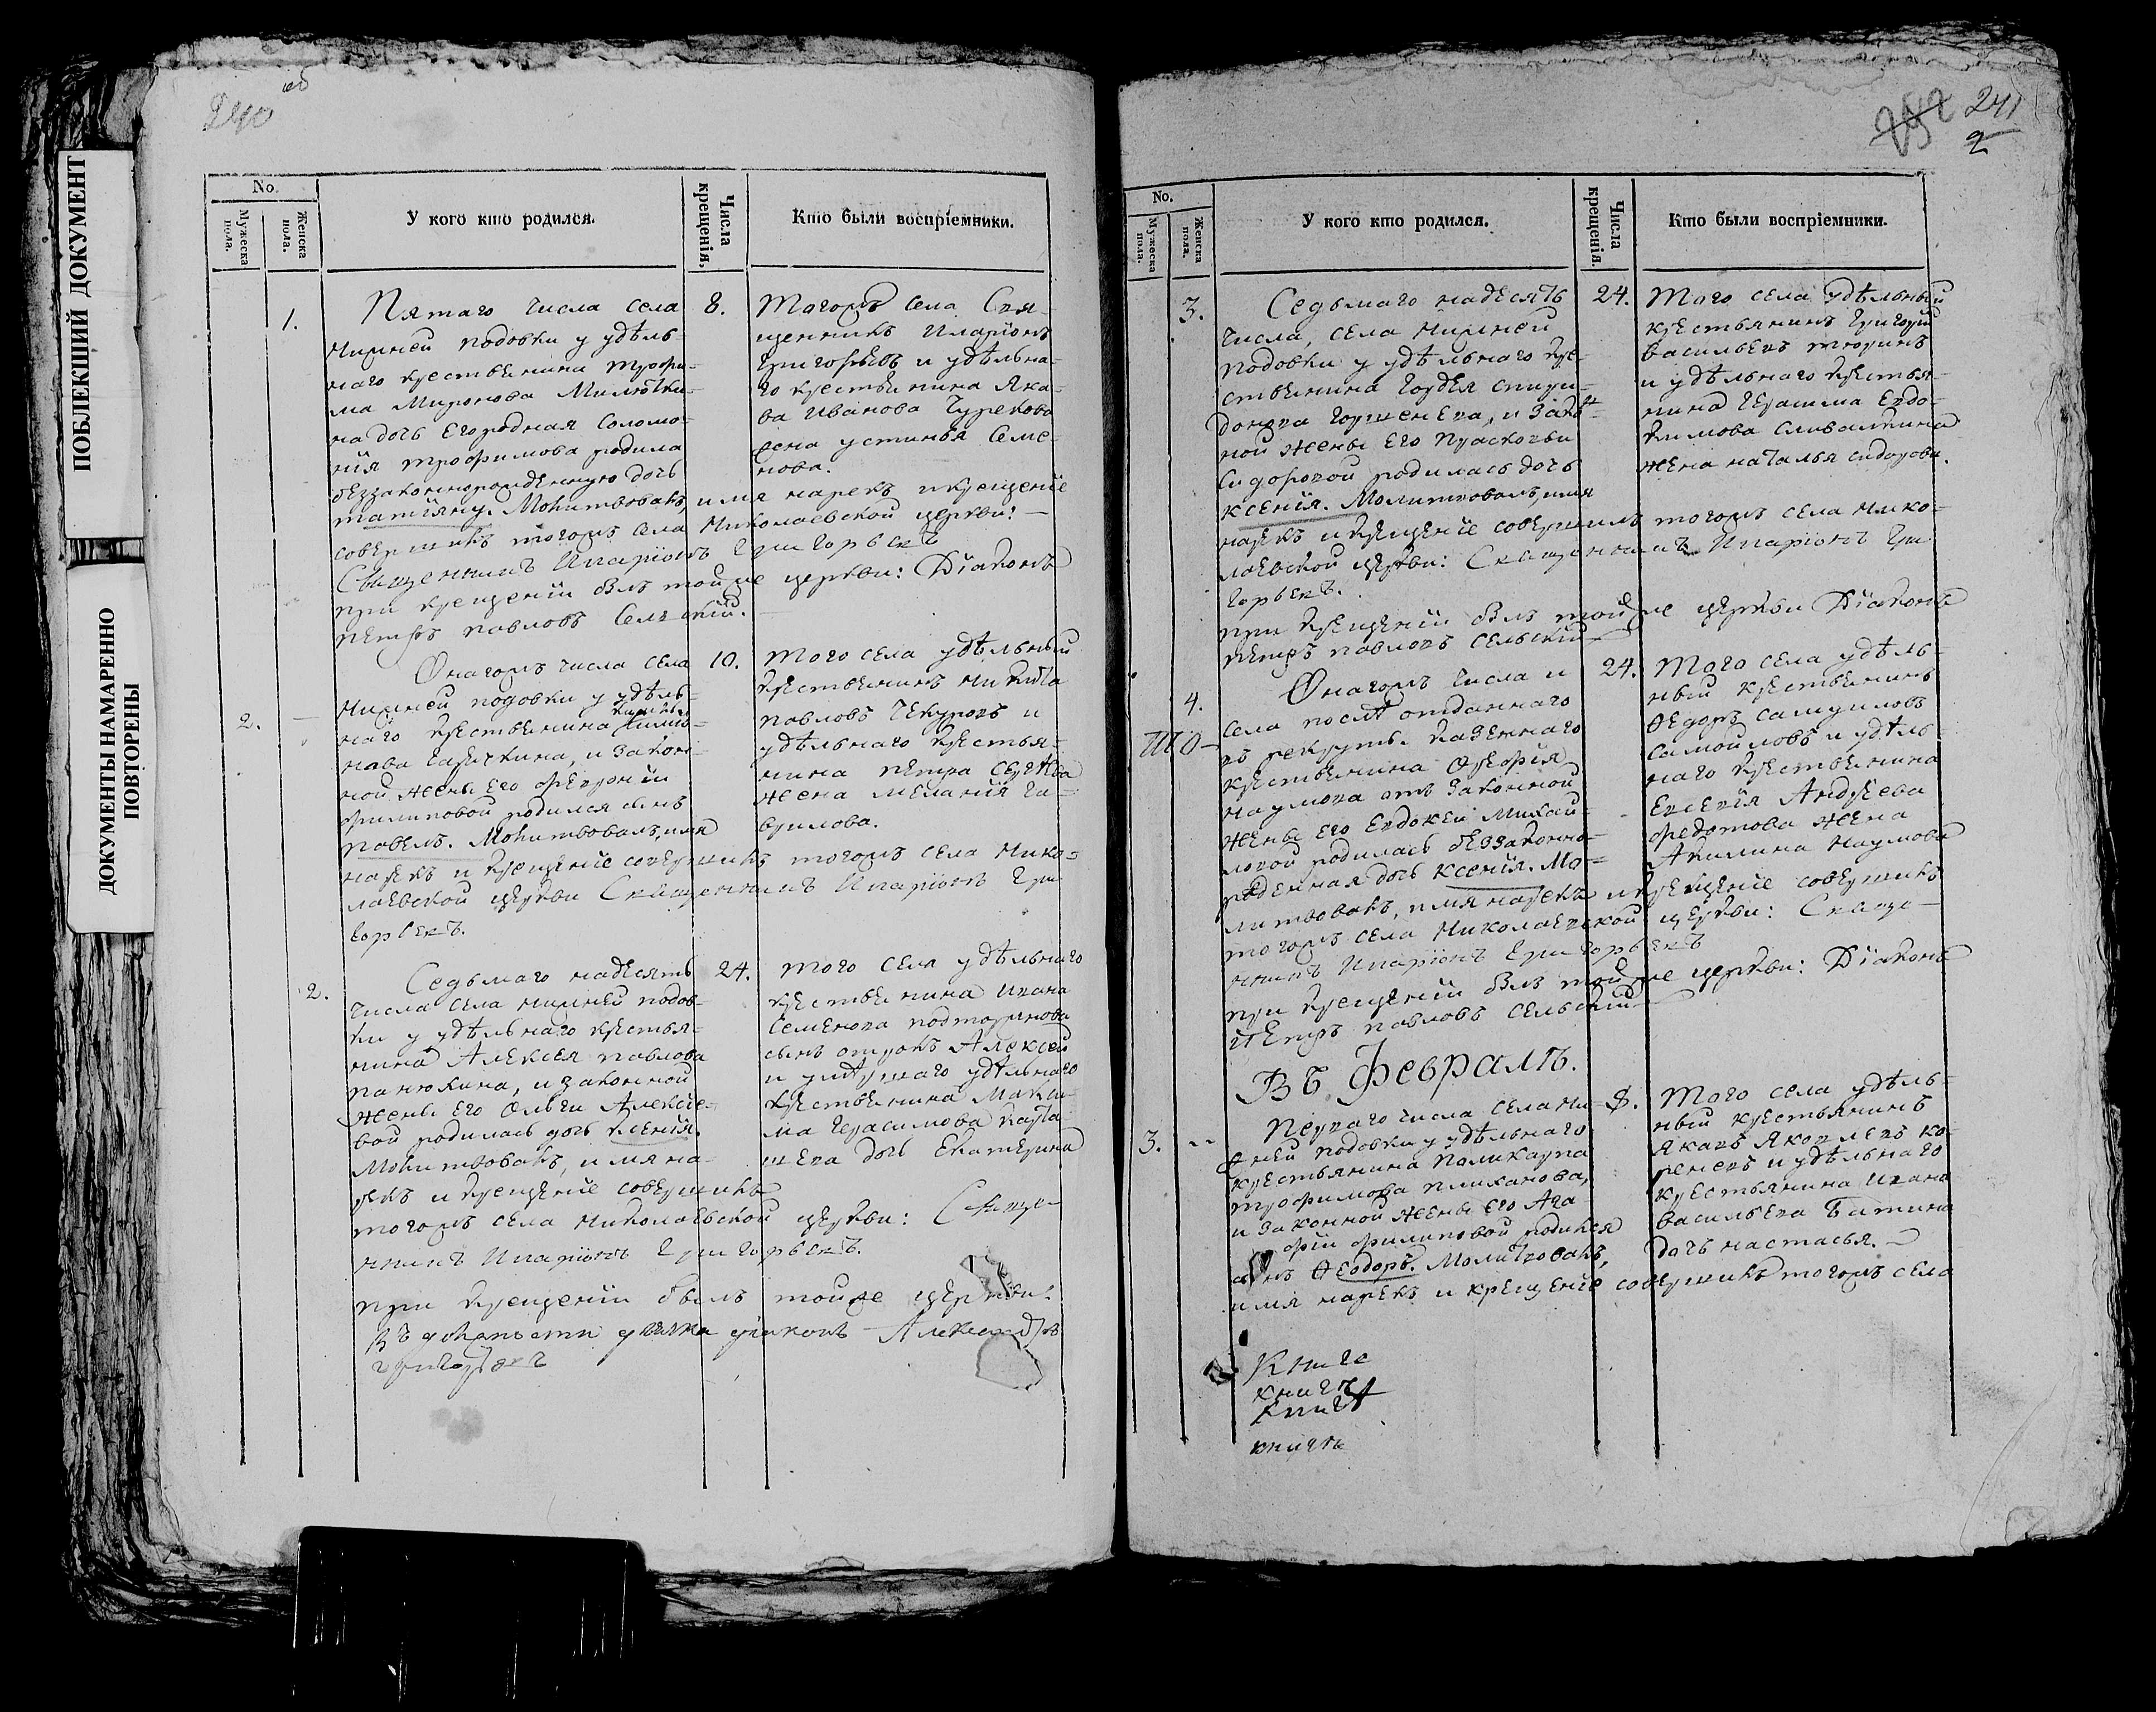 ПОБЛЕКШИЙ ДОКУМЕНТ
ДОКУМЕНТЫ НАМАРЕННО
ПОВТОРЕНЫ
240 об
No.
Мужеска пола.
Женска пола.
У кого кто родился.
Числа крещенія.
Кто были воспріемники.
1.
Пятаго числа села
Нижней подовки у удѣль-
наго крестьянина трофи-
ма Миронова
на дочь Его родная Соломо-
нія трофимова родила
беззаконнорожденную дочь
татіяну. Молитвовалъ, имя нарекъ и крещеніе
совершилъ тогожъ села Николаевской церкви:
Священникъ Иларіонъ Григорьевъ
при крещеніи былъ тойже церкви: Діаконъ
петръ павловъ Сельскій.
8.
Тогожъ села Свя-
щенникъ Иларіонъ
Григорьевъ и удѣльна-
го крестьянина Яко-
ва Иванова
жена устинья Семе-
нова.
2.
Онагожъ числа села
Нижней подовки у удѣль-
наго крестьянина
и закон-
ной жены Его февроніи
филиповой родился сынъ
павелъ. Молитвовалъ, имя
нарекъ и крещеніе совершилъ тогожъ села Нико-
лаевской церкви Священникъ Иларіонъ Гри-
горьевъ.
10.
того села удѣльный
крестьянинъ никита
павловъ и
удѣльнаго крестья-
нина петра Сергѣева
жена меланія Га-
врилова.
2.
Седьмаго надесять
числа села нижней подов-
ки у удѣльнаго крестья-
нина Алексея павлова
панюкина, и законной
жены Его Ольги Алексее-
вой родилась дочь Ксенія.
Молитвовалъ, имя на-
рекъ и крещеніе совершилъ
тогожъ села Николаевской церкви: Свяще-
нникъ Иларіонъ Григорьевъ.
при крещеніи былъ тойже церкви:
въ должности діаконъ Александръ
григорьевъ
24.
того села удѣльнаго
крестьянина Ивана
Семенова
сынъ отрокъ Алексей
и умершаго удѣльнаго
крестьянина Макси-
ма Герасимова
дочь Екатерина
252 241
2
No.
Мужеска пола.
Женска пола.
У кого кто родился.
Числа крещенія.
Кто были воспріемники.
3.
Седьмаго надесять
числа, села Нижней
подовки у удѣльнаго кре-
стьянина Гордея спири-
донова Горшенева, и закон-
ной жены Его прасковьи
Сидоровой родилась дочь
ксенія. Молитвовалъ, имя
нарекъ и крещеніе совершилъ тогожъ села Нико-
лаевской церкви: Священникъ Иларіонъ Гри-
горьевъ.
при крещеніи былъ тойже церкви Діаконъ
петръ павловъ сельскій
24.
того села удѣльный
крестьянинъ Григорій
васильевъ тюринъ
и удѣльнаго крестья-
нина Герасима Евдо-
кимова
жена наталья сидорова.
4.
Онагожъ числа и
села послѣ отданнаго
въ рекруты казеннаго
крестьянина
наумова отъ законной
жены Его Евдокеи Михай-
ловой родилась беззаконно-
рожденная дочь ксенія. Мо-
литвовалъ, имя нарекъ и крещеніе совершилъ
тогожъ села Николаевской церкви: Свяще-
нникъ Иларіонъ Григорьевъ
при крещеніи былъ тойже церкви: Діаконъ
Петръ павловъ сельскій
24.
того села удѣль-
ный крестьянинъ
Ѳедоръ самуиловъ
самойловъ и удѣль-
наго крестьянина
Евсевія Андреева
федотова жена
Акилина Наумова
Въ Февралѣ.
3.
Перваго числа села Ни-
жней подовки у удѣльнаго
крестьянина Поликарпа
трофимова плиханова,
и законной жены Его Ага-
фіи филиповой родился
сынъ Ѳеодоръ. Молитвовалъ,
имя нарекъ и крещеніе совершилъ тогожъ села
8.
того села удѣль-
ный крестьянинъ
Яковъ Яковлевъ ко-
реневъ и удѣльнаго
крестьянина Ивана
васильева Батина
дочь настасья.
Книге
книгѣ
книгѣ
книгѣ